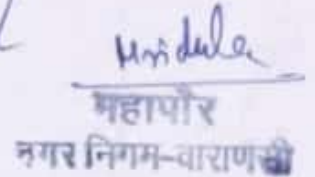 Mridula
महापौर
नगर निगम-वाराणसी